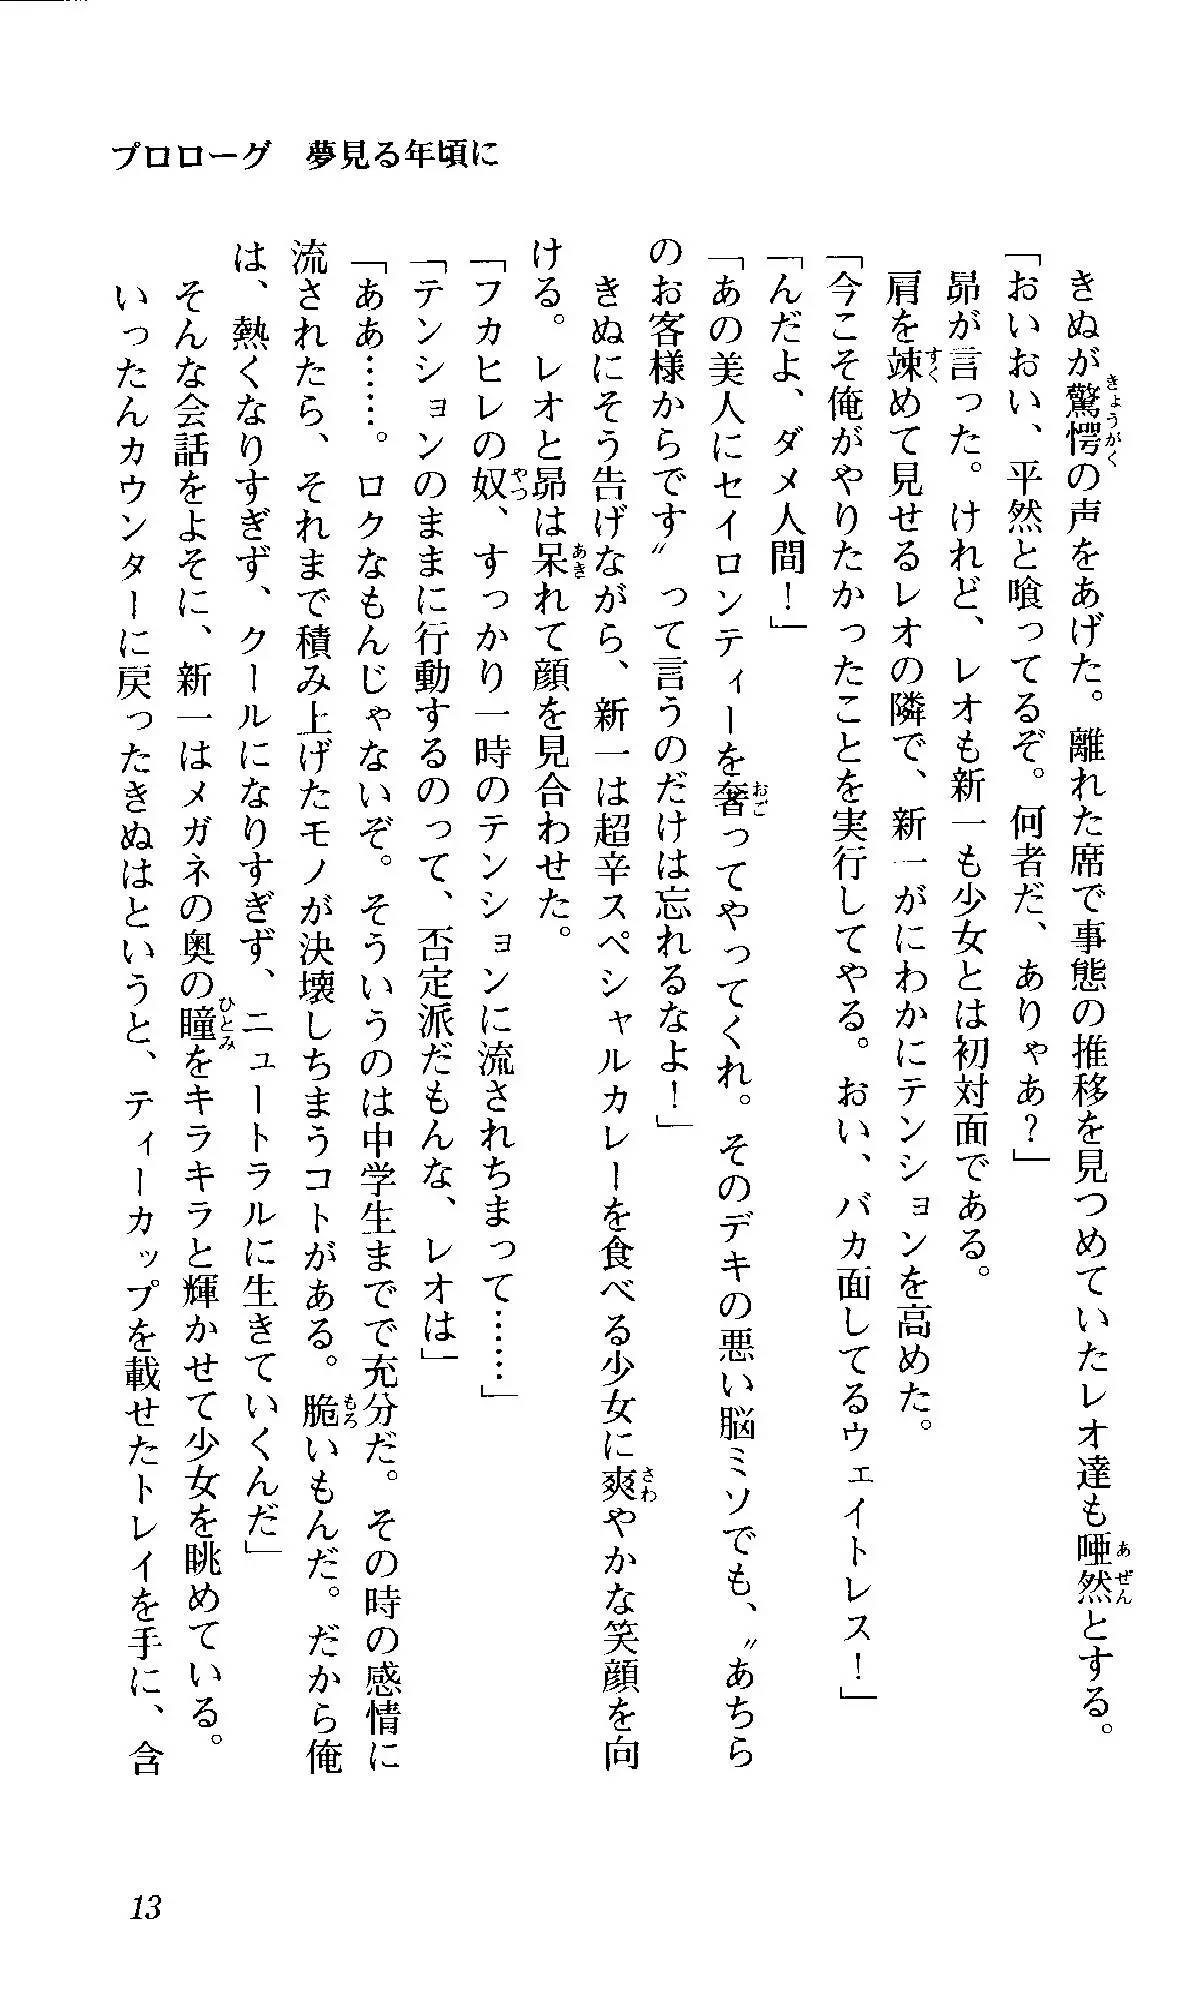 プロローグ　夢見る年頃に
　きぬが驚愕の声をあげた。離れた席で事態の推移を見つめていたレオ達も唖然とする。
「おいおい、平然と喰ってるぞ。何者だ、ありゃあ？」
　昴が言った。けれど、レオも新一も少女とは初対面である。
　肩を竦めて見せるレオの隣で、新一がにわかにテンションを高めた。
「今こそ俺がやりたかったことを実行してやる。おい、バカ面してるウェイトレス！」
「んだよ、ダメ人間！」
「あの美人にセイロンティーを奢ってやってくれ。そのデキの悪い脳ミソでも、〝あちら
のお客様からです〟って言うのだけは忘れるなよ！」
　きぬにそう告げながら、新一は超辛スペシャルカレーを食べる少女に爽やかな笑顔を向
ける。レオと昴は呆れて顔を見合わせた。
「フカヒレの奴、すっかり一時のテンションに流されちまって……」
「テンションのままに行動するのって、否定派だもんな、レオは」
「ああ……。ロクなもんじゃないぞ。そういうのは中学生までで充分だ。その時の感情に
流されたら、それまで積み上げたモノが決壊しちまうコトがある。脆いもんだ。だから俺
は、熱くなりすぎず、クールになりすぎず、ニュートラルに生きていくんだ」
　そんな会話をよそに、新一はメガネの奥の瞳をキラキラと輝かせて少女を眺めている。
　いったんカウンターに戻ったきぬはというと、ティーカップを載せたトレイを手に、含
13